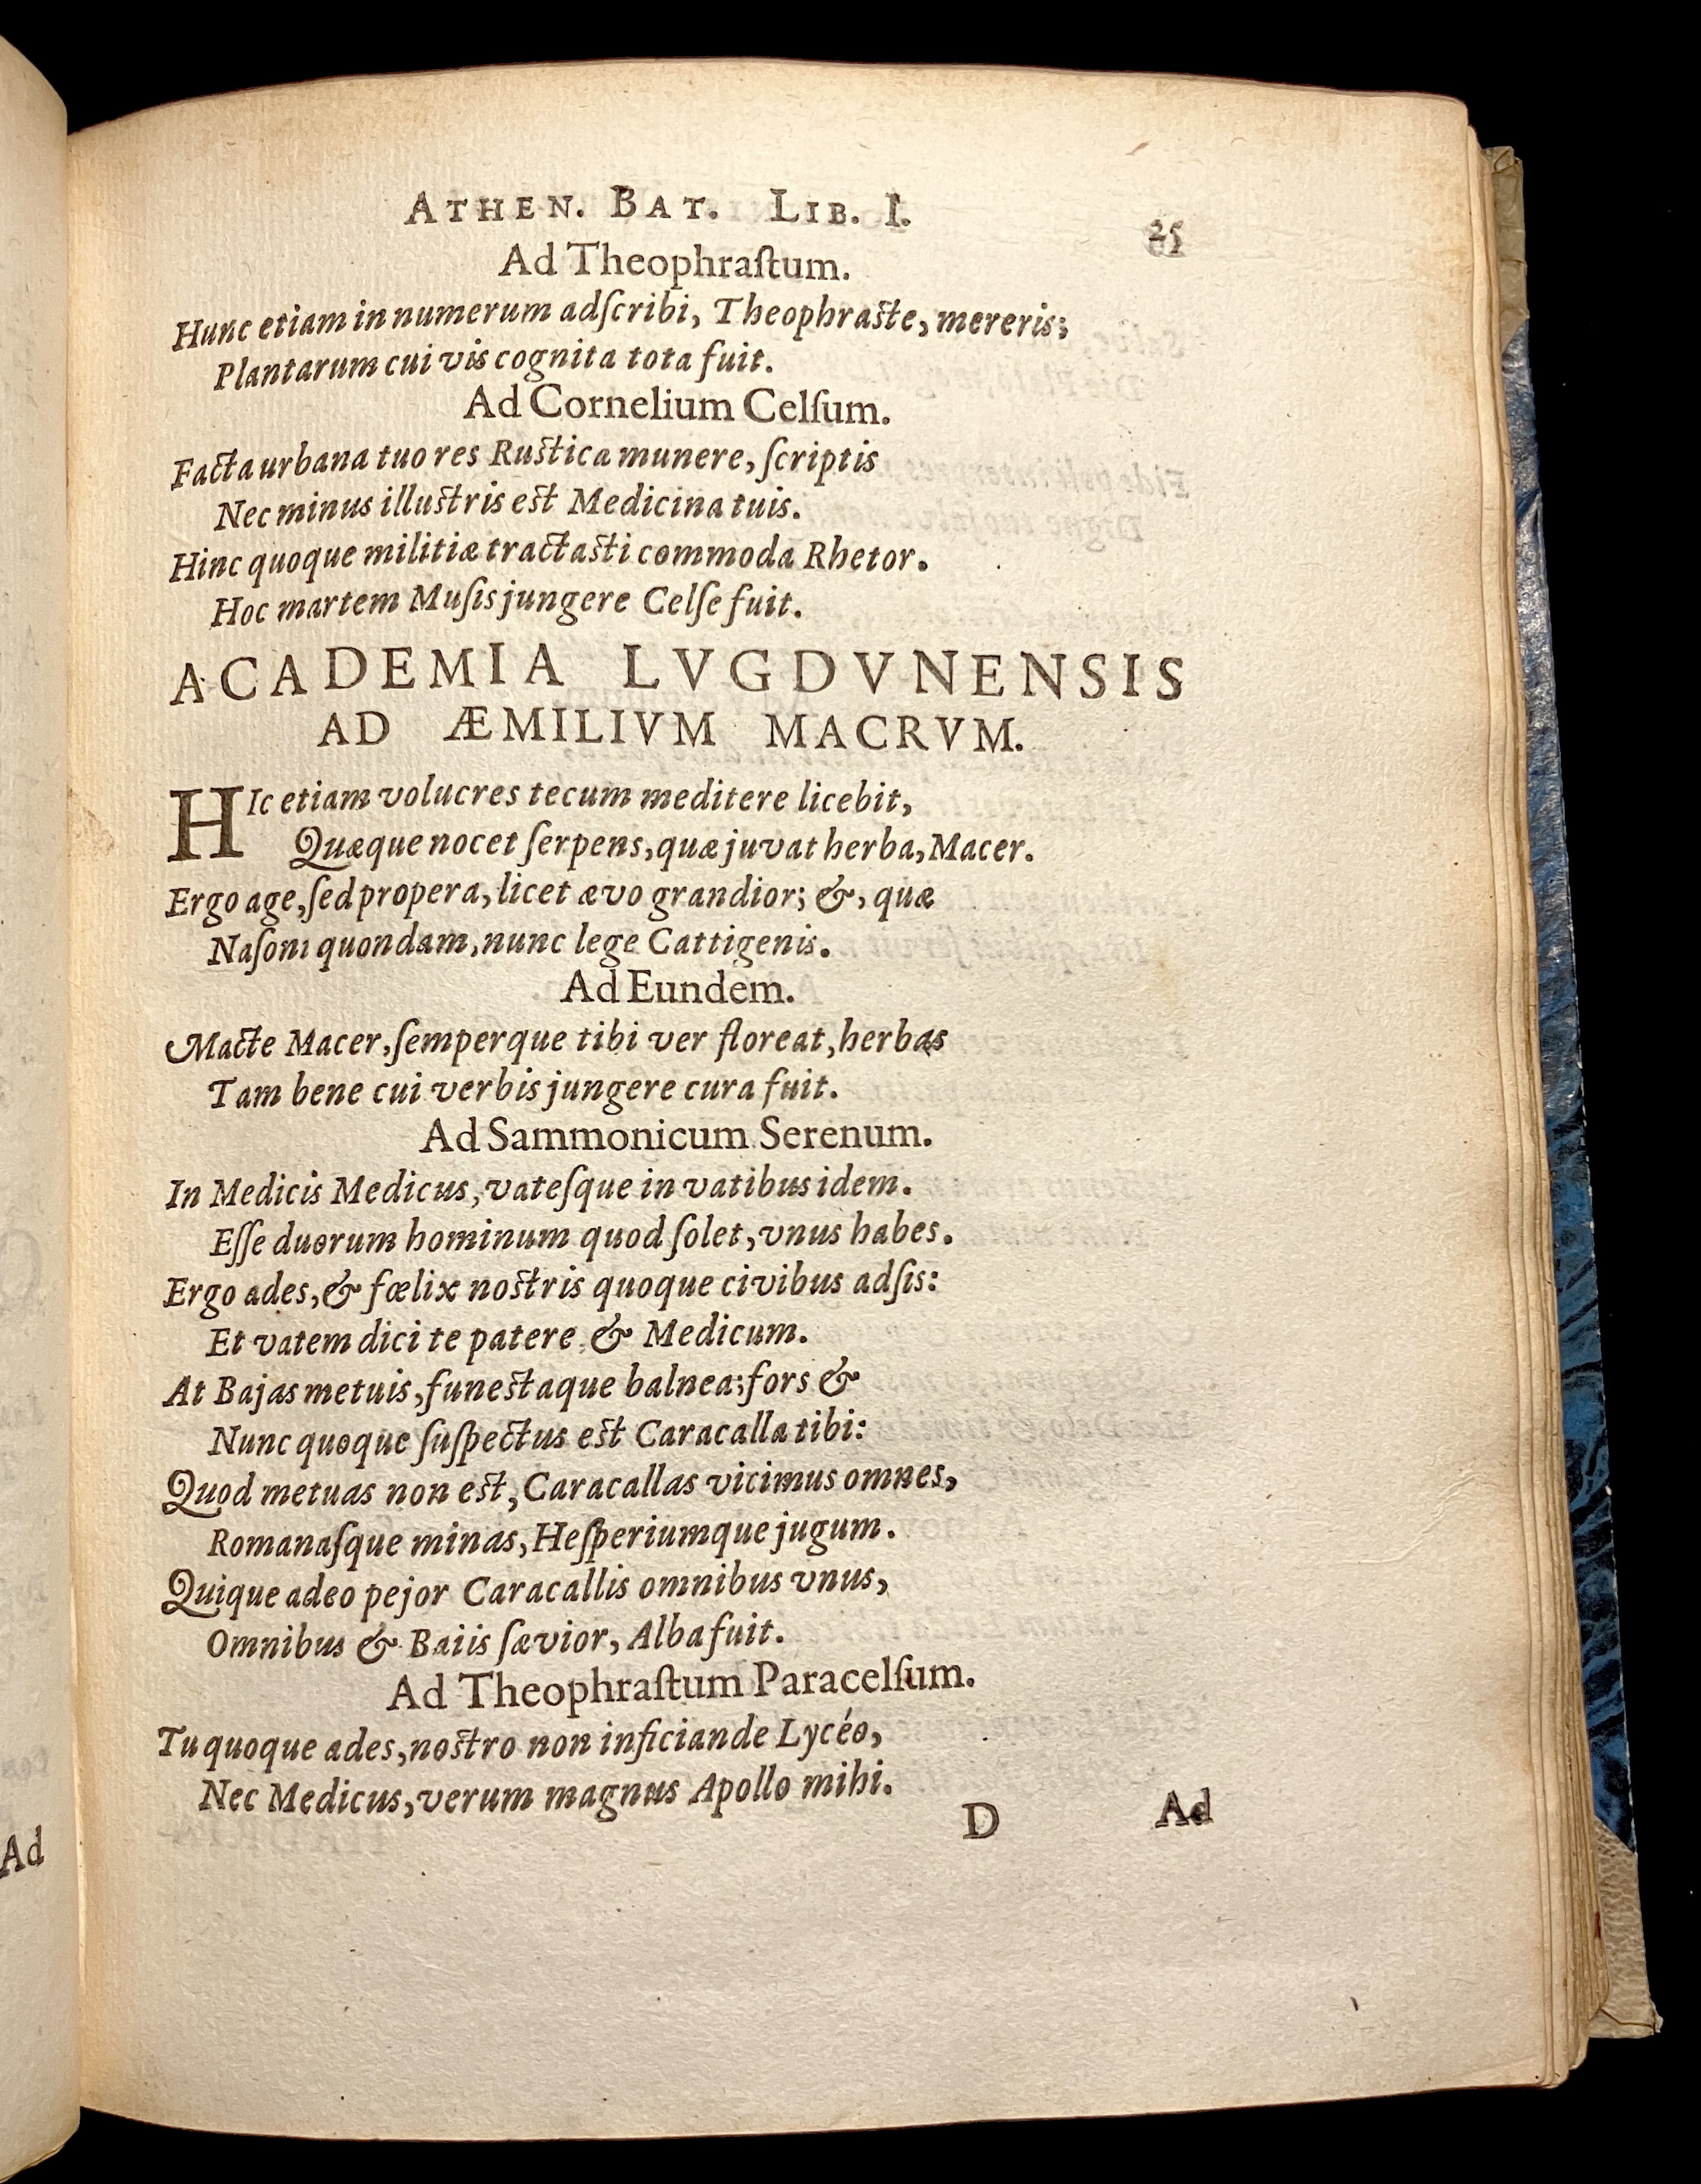 ATHEN. BAT. LIB. I. 25
Ad Theophraſtum.
Hunc etiam in numerum adſcribi, Theophraſte, mereris;
Plantarum cui vis cognita tota fuit.
Ad Cornelium Celſum.
Facta urbana tuo res Ruſtica munere, ſcriptis
Nec minus illuſtris eſt Medicina tuis.
Hinc quoque militiæ tractaſti commoda Rhetor.
Hoc martem Muſis jungere Celſe fuit.
ACADEMIA LVGDVNENSIS
AD ÆMILIVM MACRVM.
HIc etiam volucres tecum meditere licebit,
Quæque nocet ſerpens, quæ juvat herba, Macer.
Ergo age, ſed propera, licet ævo grandior; &, quæ
Naſoni quondam, nunc lege Cattigenis.
Ad Eundem.
Macte Macer, ſemperque tibi ver floreat, herbas
Tam bene cui verbis jungere cura fuit.
Ad Sammonicum Serenum.
In Medicis Medicus, vateſque in vatibus idem.
Eſſe duorum hominum quod ſolet, vnus habes.
Ergo ades, & fœlix noſtris quoque civibus adſis:
Et vatem dici te patere & Medicum.
At Bajas metuis, funeſtaque balnea; fors &
Nunc quoque ſuſpectus eſt Caracalla tibi:
Quod metuas non eſt, Caracallas vicimus omnes,
Romanaſque minas, Heſperiumque jugum.
Quique adeo pejor Caracallis omnibus vnus,
Omnibus & Baiis ſævior, Alba fuit.
Ad Theophraſtum Paracelſum.
Tu quoque ades, noſtro non inficiande Lycéo,
Nec Medicus, verum magnus Apollo mihi.
D Ad
Ad